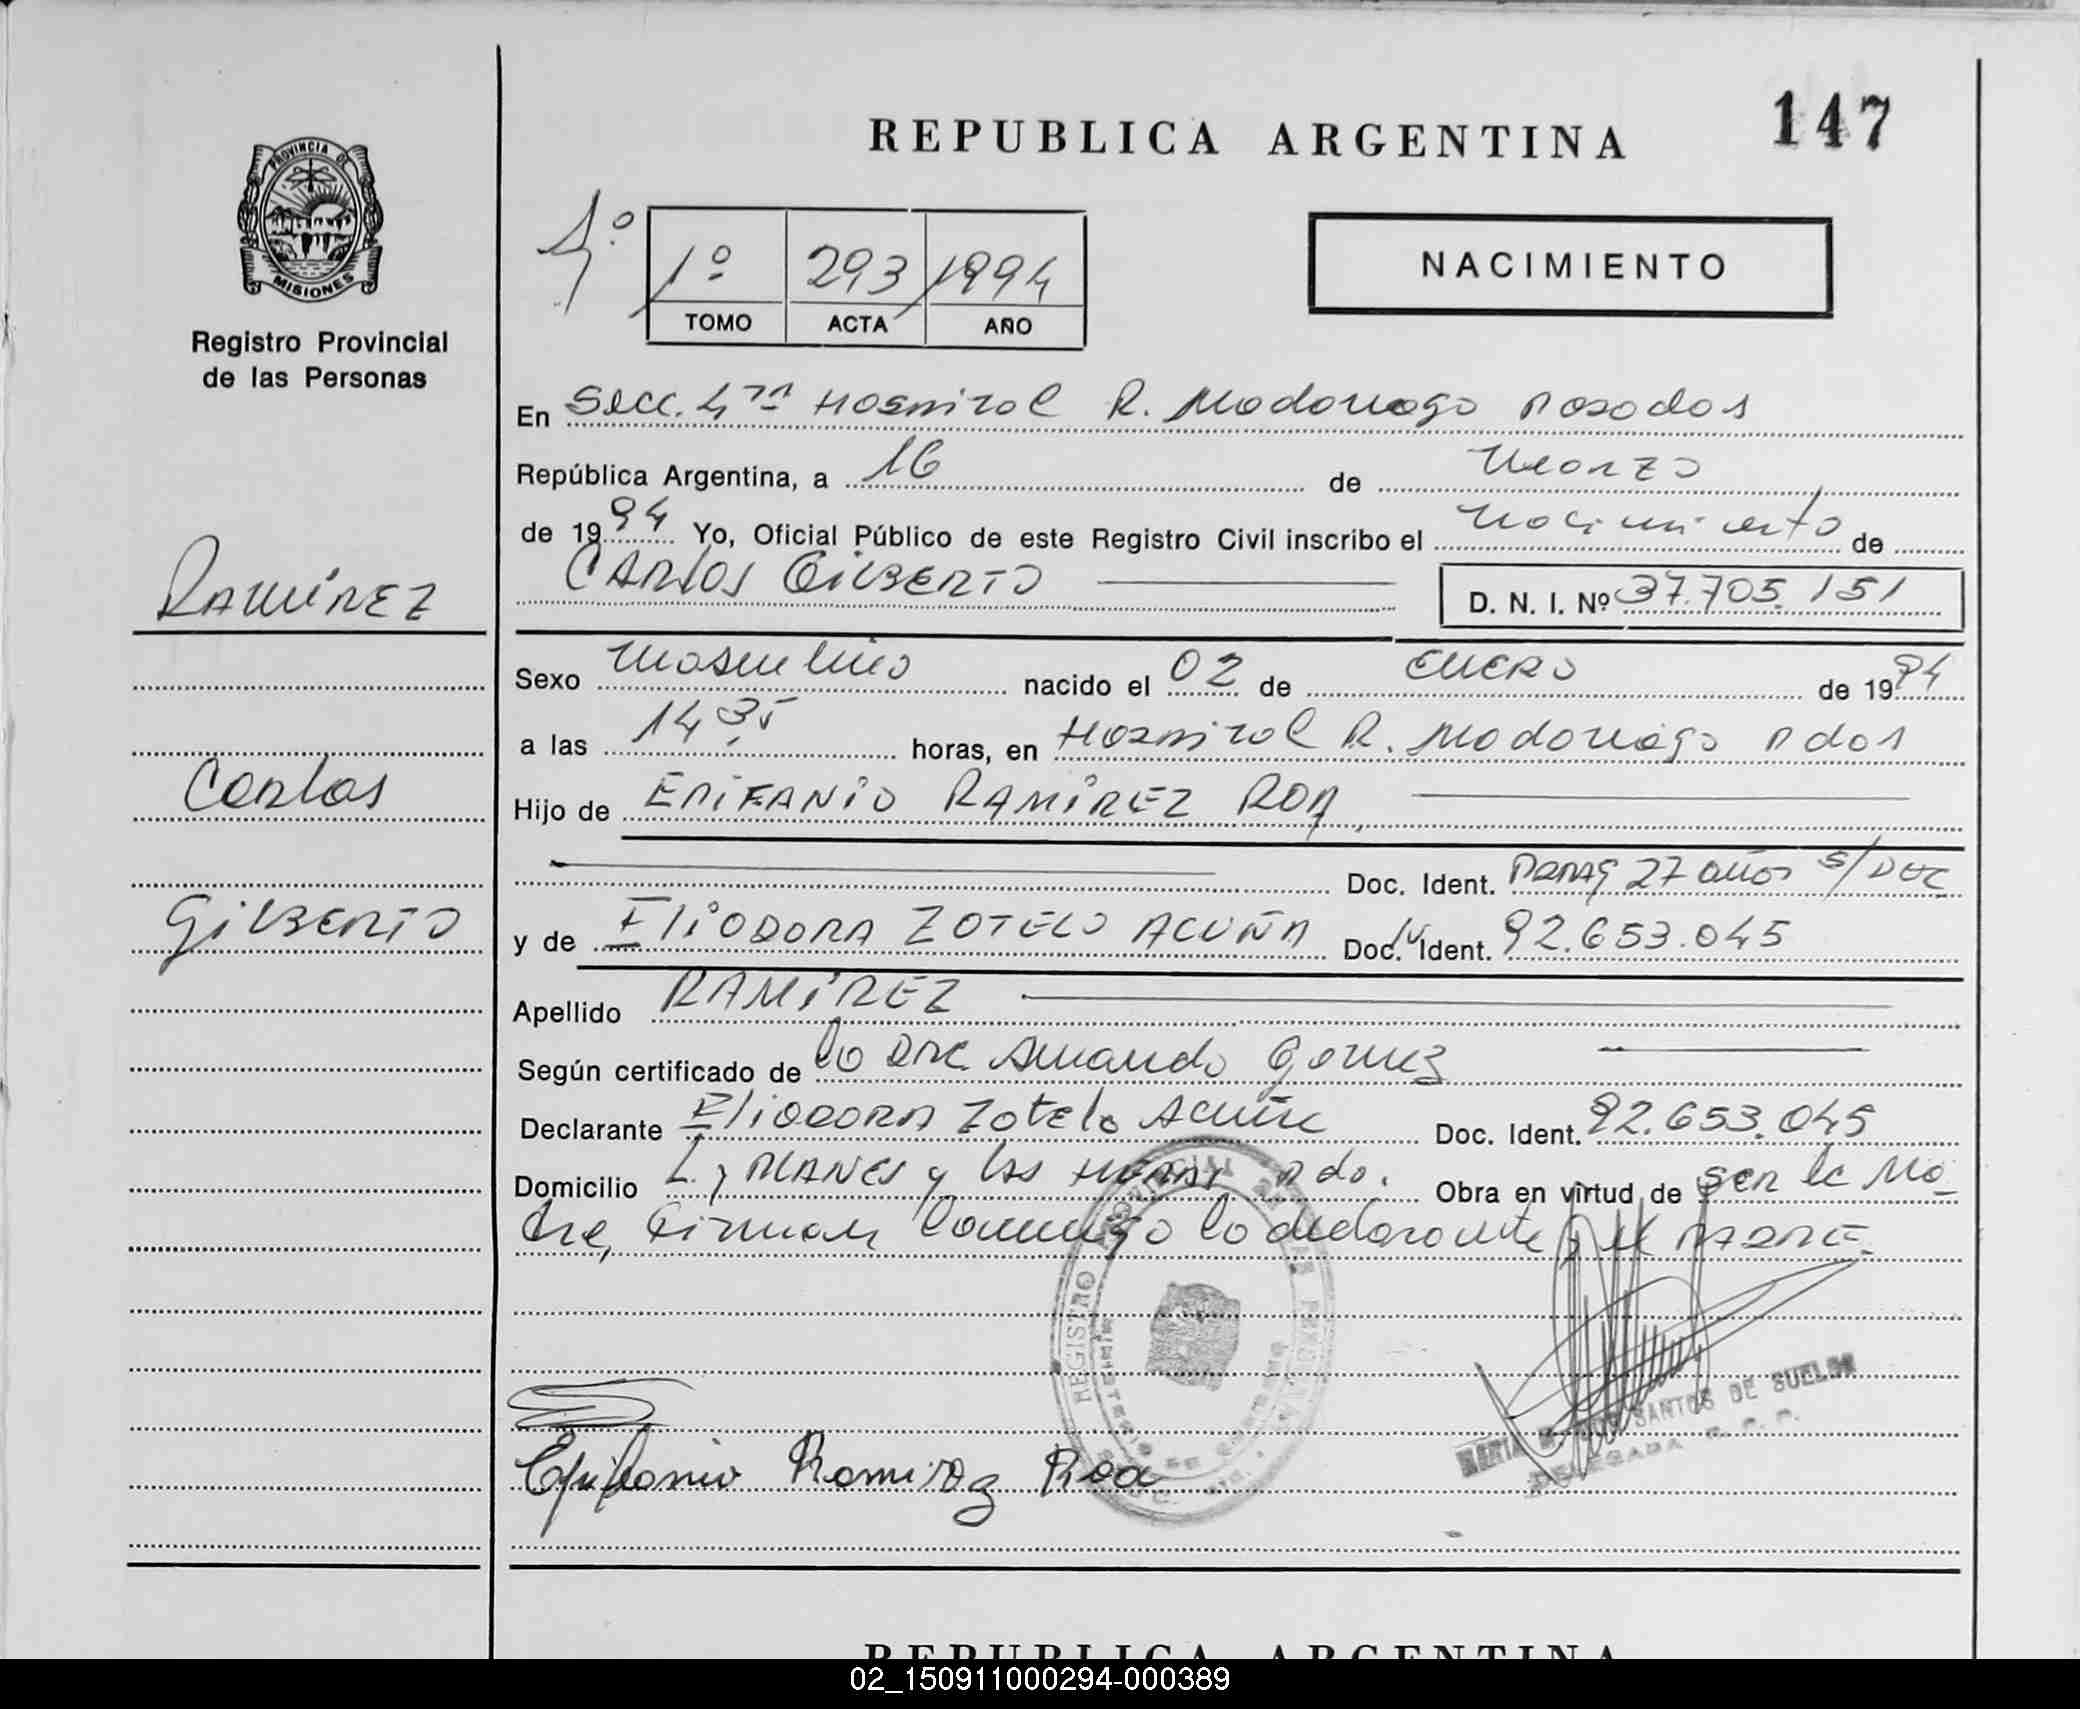 REPUBLICA ARGENTINA
147
PROVINCIA DE
MISIONES
Registro Provincial
de las Personas
4º
1º 293 1994
TOMO ACTA AÑO
NACIMIENTO
En Secc. 4ta Hospital R. Madariaga Posadas
República Argentina, a 16 de Marzo
de 1994 Yo, Oficial Público de este Registro Civil inscribo el nacimiento de
CARLOS GILBERTO D. N. I. Nº 37.705.151
RAMÍREZ
Sexo Masculino nacido el 02 de ENERO de 1994
a las 14,35 horas, en Hospital R. Madariaga Pdas
Carlos
Hijo de EPIFANIO RAMÍREZ ROA
Doc. Ident. PARAG 27 años S/DOC
GILBERTO
y de ELIODORA ZOTELO ACUÑA Doc. Ident. 92.653.045
Apellido RAMÍREZ
Según certificado de la Dra. Amanda Gomez
Declarante ELIODORA Zotelo Acuña Doc. Ident. 92.653.045
Domicilio L. y PLANES y LAS HERAS Pdas. Obra en virtud de ser la Ma-
dre, Firman conmigo la declarante y el PADRE.
REGISTRO
MARIA SANTOS DE SUELDO
DELEGADA R. P. P.
Epifanio Ramirez Roa
REPUBLICA ARGENTINA
02_150911000294-000389